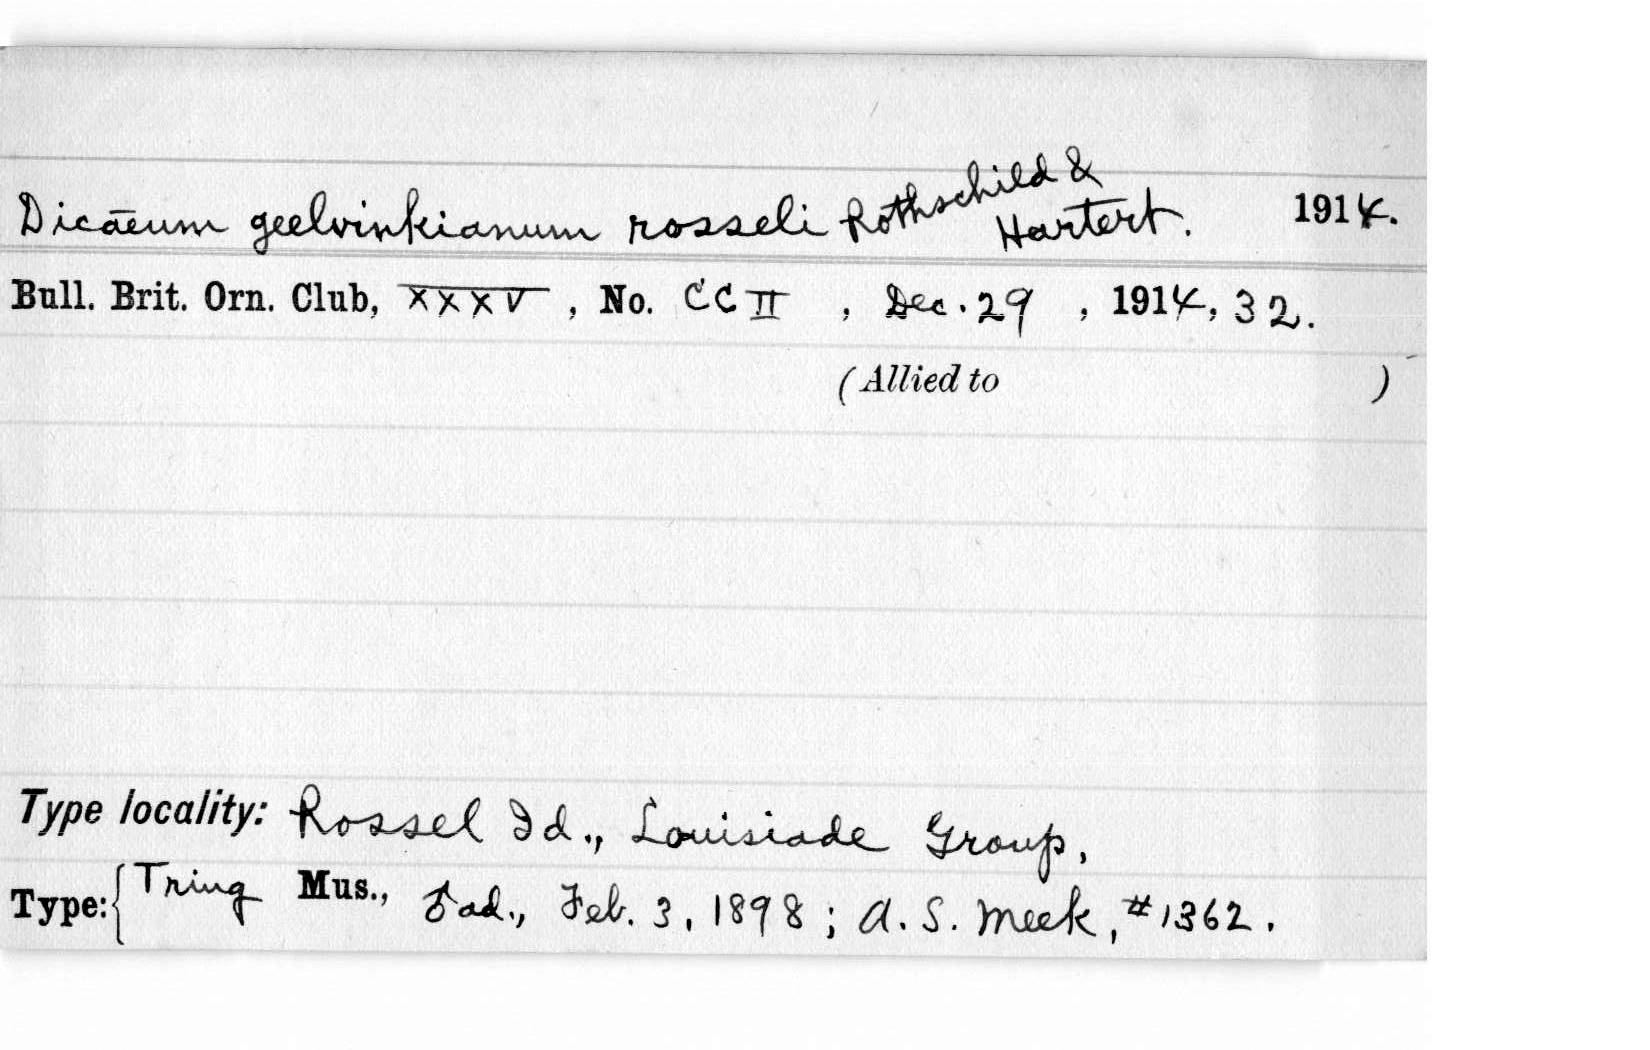 Dicaeum geelvinkianum rosseli Rothschild & Hartert. 1914.
Bull. Brit. Orn. Club, XXXV, No. CCII, Dec. 29, 1914, 32.
(Allied to )
Type locality: Rossel Id., Louisiade Group,
Type: { Tring Mus., ♂ ad., Feb. 3, 1898; A. S. Meek, #1362.